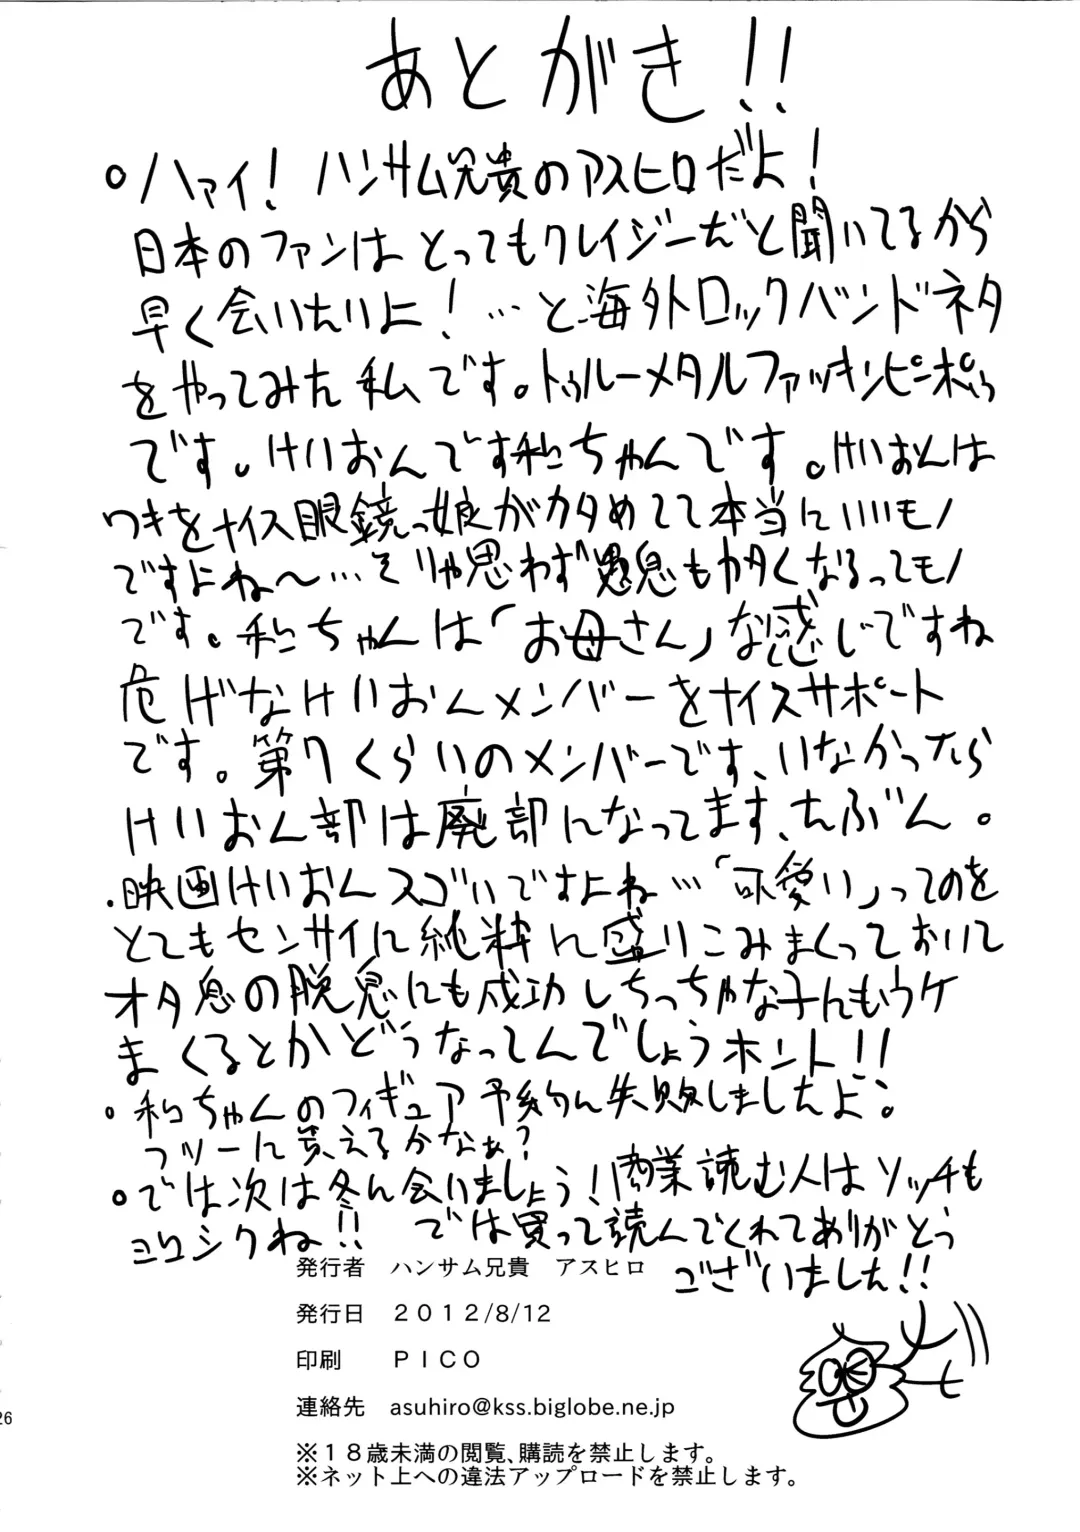 あとがき!!
。ハァイ! ハンサム兄貴のアスヒロだよ!
日本のファンは とってもクレイジーだと聞いてるから
早く会いたいよ! …と海外ロックバンドネタ
をやってみた私です。トゥルーメタルファッキンピーポゥ
です。けいおんです和ちゃんです。けいおんは
ワキをナイス眼鏡っ娘がカタめてて本当にいいモノ
ですよね〜…そりゃ思わず愚息もカタくなるってモノ
です。和ちゃんは「お母さん」な感じですね
危げなけいおんメンバーをナイスサポート
です。第7くらいのメンバーです、いなかったら
けいおん部は廃部になってます、たぶん。
・映画けいおんスゴいですよね…「可愛い」ってのを
とてもセンサイに純粋に盛りこみまくっておいて
オタ息の脱息にも成功しちっちゃな子にもウケ
まくるとかどうなってんでしょうホント!!
。和ちゃんのフィギュア予約に失敗しましたよ:
フツーに貰えるかなぁ?
。では次は冬に会いましょう!商業読む人はソッチも
ヨロシクね!! では買って読んでくれてありがとう
ございました!!
発行者 ハンサム兄貴 アスヒロ
発行日 2012/8/12
印刷 PICO
連絡先 asuhiro@kss.biglobe.ne.jp
※18歳未満の閲覧、購読を禁止します。
※ネット上への違法アップロードを禁止します。
26